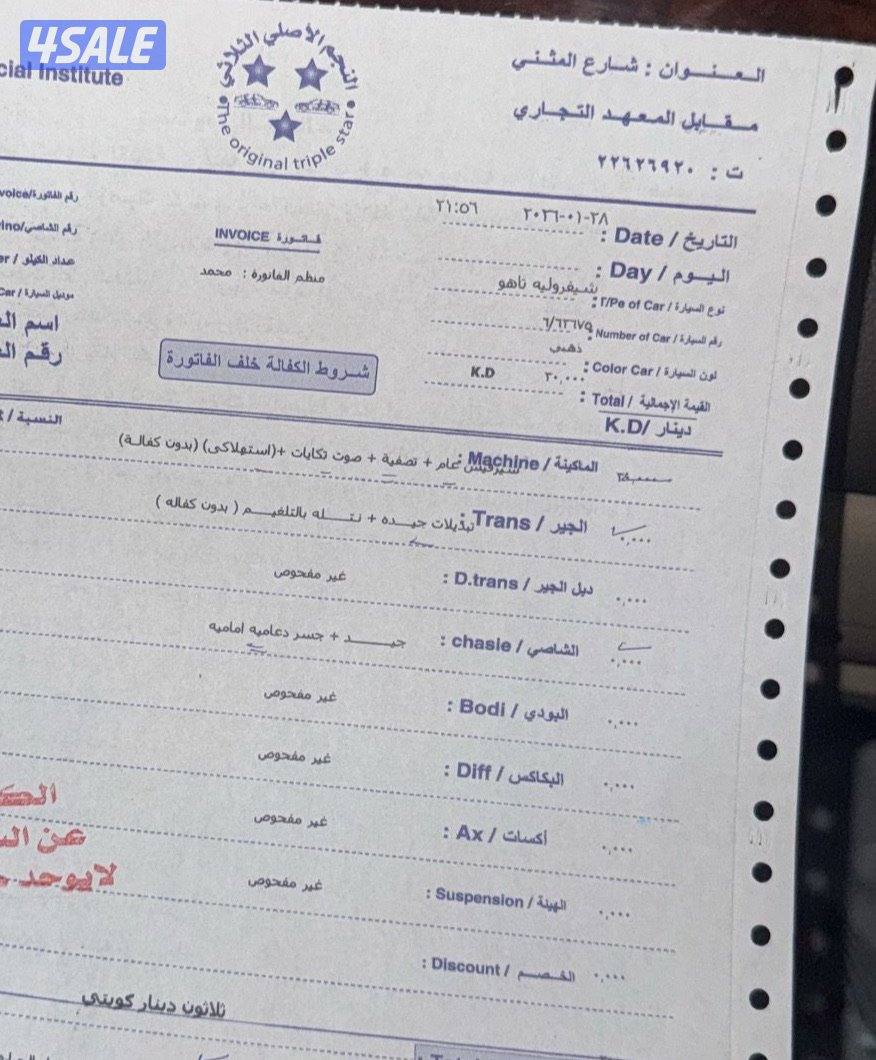 4SALE
العنوان : شارع المثني
cial Institute
النجم الأصلي الثلاثي
The original triple star
مقابل المعهد التجاري
ت : ٢٢٦٢٦٩٢٠
٢٠٢٦-٠١-٢٨ ٢١:٥٦
التاريخ / Date :
رقم الفاتورة/voice
فاتورة INVOICE
اليوم / Day :
رقم الشاصي/ino
منظم الفاتورة : محمد
نوع السيارة / T/Pe of Car : شيفروليه تاهو
عداد الكيلو / er
رقم السيارة / Number of Car : ٦/٦٢٦٧٥
موديل السيارة / Car
لون السيارة / Color Car : ذهبي
اسم
شروط الكفالة خلف الفاتورة
القيمة الإجمالية / Total : ٣٠,٠٠٠ K.D
رقم
دينار /K.D
النسبة /
الماكينة / Machine : سيرفيس عام + تصفية + صوت تكايات +(استهلاكى) (بدون كفالة)
الجير / Trans : تبديلات جيده + نتله بالتلغيم ( بدون كفاله ) ٠,٠٠٠
دبل الجير / D.trans : غير مفحوص ٠,٠٠٠
الشاصي / chasie : جيد + جسر دعاميه اماميه ٠,٠٠٠
البودي / Bodi : غير مفحوص ٠,٠٠٠
البكاكس / Diff : غير مفحوص ٠,٠٠٠
أكسات / Ax : غير مفحوص ٠,٠٠٠
عن
الهيئة / Suspension : غير مفحوص ٠,٠٠٠
لا يوجد
الخصم / Discount : ٠,٠٠٠
ثلاثون دينار كويتي